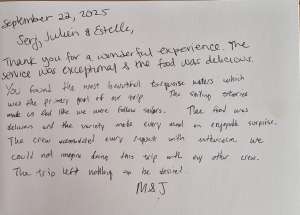 September 22, 2025
Serj, Julien & Estelle,
Thank you for a wonderful experience. The
service was exceptional & the food was delicious.
You found the most beautiful turquoise waters which
was the primary goal of our trip. The sailing stories
made us feel like we were fellow sailors. The food was
delicious and the variety made every meal an enjoyable surprise.
The crew accommodated every request with enthusiasm. We
could not imagine doing this trip with any other crew.
The trip left nothing to be desired.
M&J